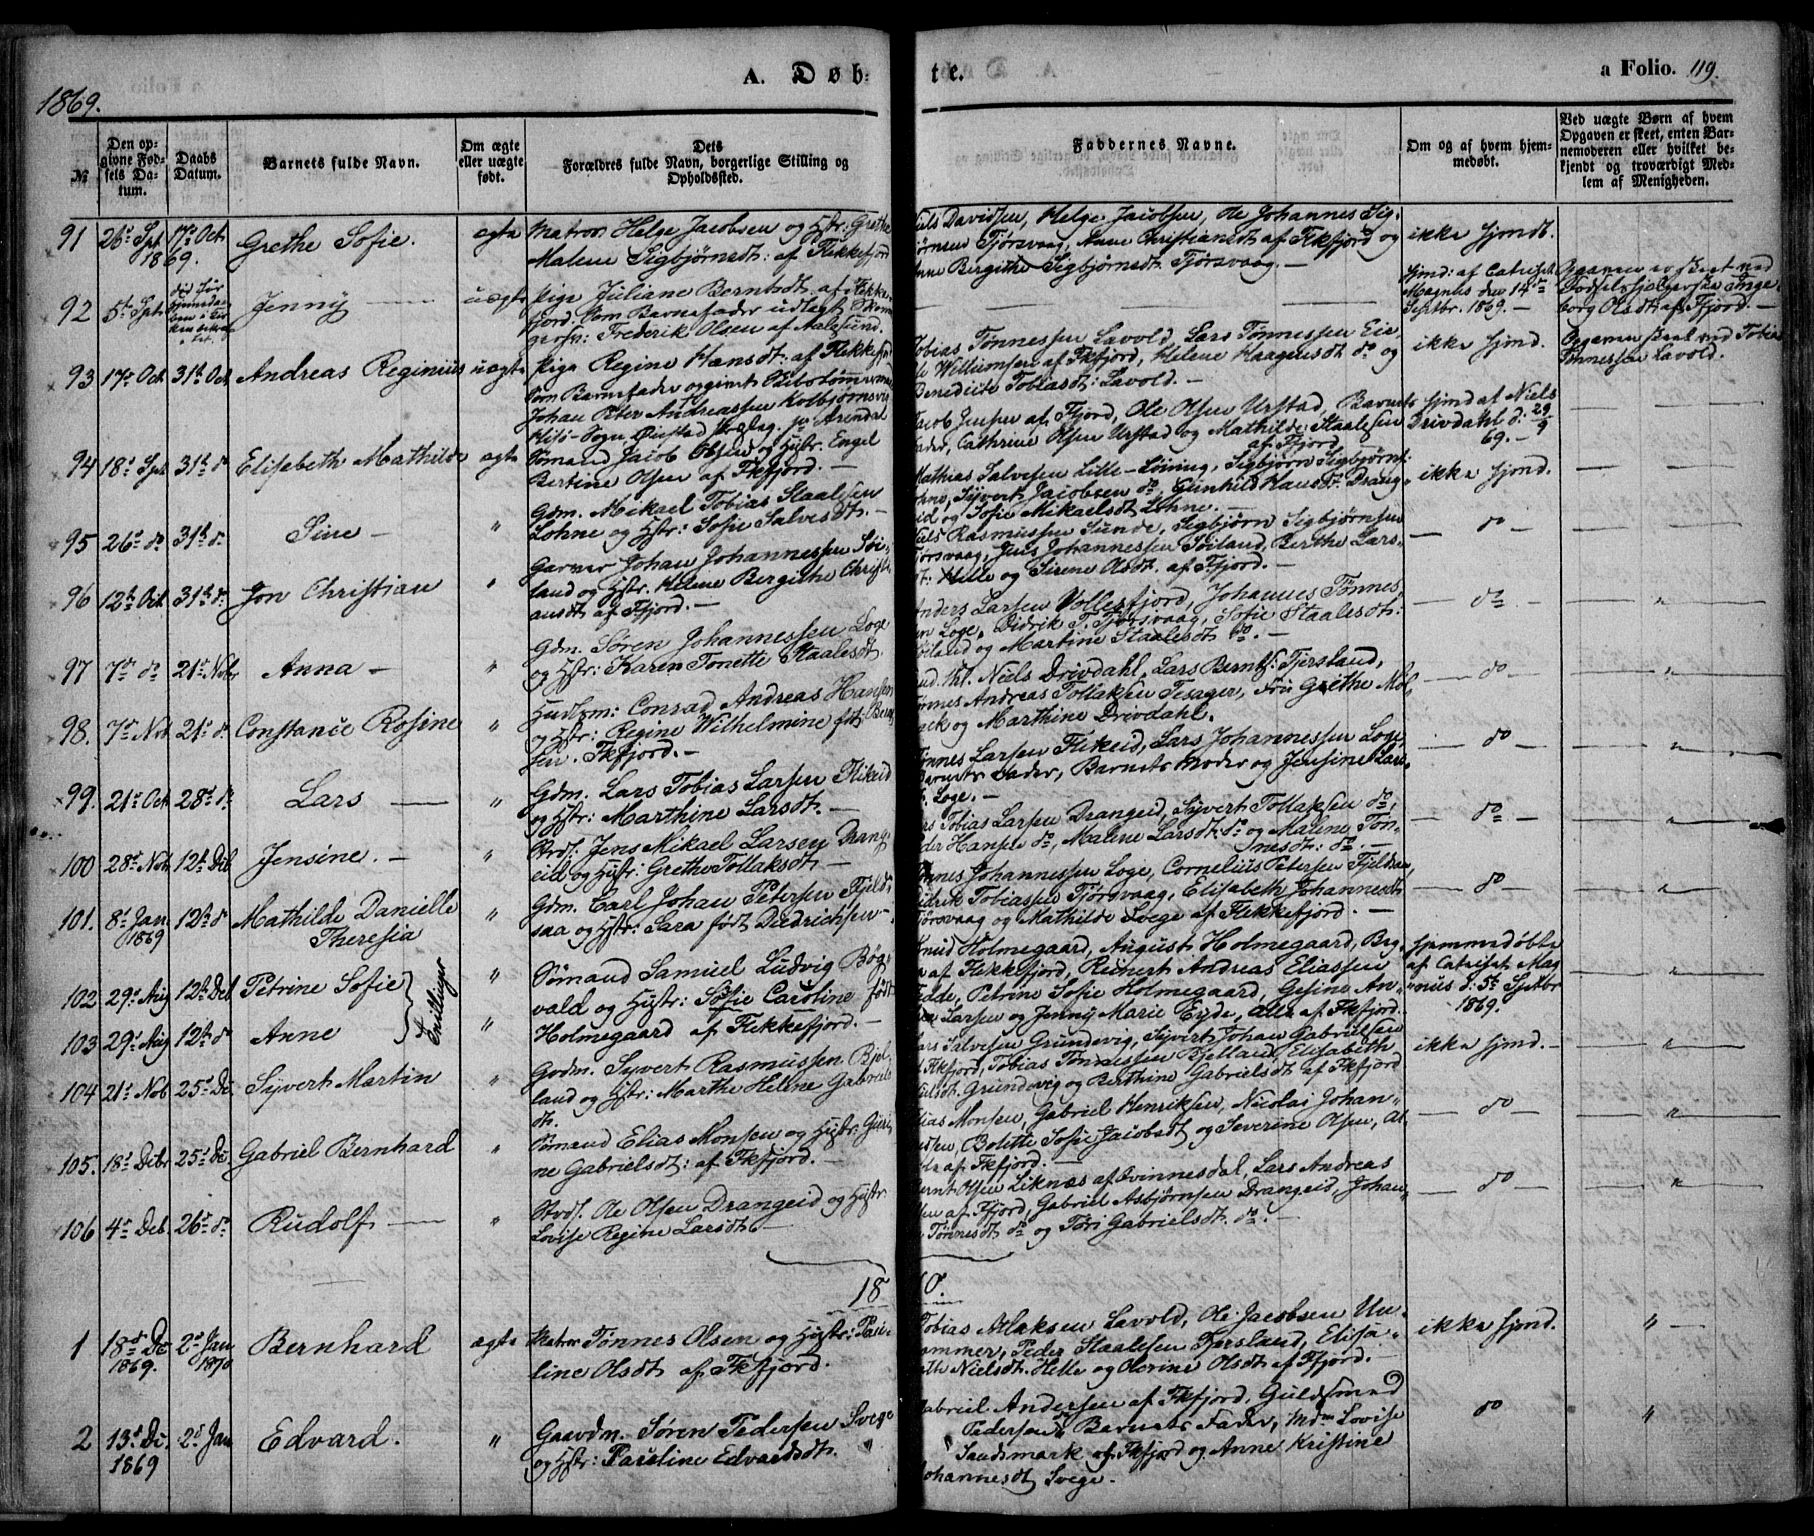 A. Døb- te. a Folio. 119.
1869.
№
Den op-
givne Fød-
sels Da-
tum.
Daabs
Datum.
Barnets fulde Navn.
Om ægte
eller uægte
født.
Dets
Forældres fulde Navn, borgerlige Stilling og
Opholdssted.
Faddernes Navne.
Om og af hvem hjem-
medøbt.
Ved uægte Børn af hvem
Opgaven er skeet, enten Bar-
nemoderen eller hvilket be-
kjendt og troværdigt Med-
lem af Menigheden.
91 26de Spt 1869. 17de Oct Grethe Sofie. ægte
Matros Helge Jacobsen og Hstr: Grethe
Malene Sigbjørnsdt: af Flekkefjord
Niels Davidsen, Helge Jacobsen, Ole Johannes Sig-
bjørnsen Tjørsvaag, Anne Christiansdt af Fkfjord og
Anne Bergithe Sigbjørnsdt. Tjørsvaag. —
ikke hjmdt.
92 5te Spt Jenny — uægte
Pige Juliane Berntsdt. af Flekke-
fjord. Som Barnefader udlagt
Frederik Olsen af Aalesund.
hjmd: af Catechet
Magnus den 14de
Septbr. 1869. —
Opgaven er skeet ved
Fødselshjælpersken Inge-
borg Olsdt af Fjord. —
93 17de Oct. 31te Oct Andreas Reginius uægte
Pige Regine Hansdt: af Flekkefjord
Som Barnefader opgivet
Johan Peter Andreassen Kolbjørnsvig
Hisø Sogn, Øiestad Præsteg. pr Arendal
Tobias Tønnessen Lavold, Lars Tønnessen Eie,
Ole Williumsen af Fkfjord, Helene Haagensdt do og
Benedicte Tobiasdt: Lavold. —
ikke hjmd.
Opgaven skeet ved Tobias
Tønnessen Lavold.
94 18de Spt 31te do Elisabeth Mathilde ægte
Sømand Jacob Olsen og Hustr. Engel
Bertine Olsen af Fkfjord. —
Jacob Jensen af Fjord, Ole Olsen Urstad, Barnets
Fader, Cathrine Olsen Urstad og Mathilde Staalesen
af Fjord.
hjmd af Niels
Drivdahl d: 29/9
69. —
95 26de do 31te do Sine — "
Gdm. Mikael Tobias Staalesen
Lohne og Hstr: Sofie Salvesdt. —
Mathias Salvesen Lille-Løining, Sigbjørn Sigbjørns:
Lohne, Syvert Jacobsen do, Gunhild Hansdt. Drang-
eid og Sofie Mikaelsdt Lohne. —
ikke hjmd.
96 12te Oct 31te do Jon Christian "
Garver Johan Johannessen Søi-
land og Hstr. Helene Bergithe Christi-
ansdt af Fjord. —
Niels Rasmussen Sunde, Sigbjørn Sigbjørnsen
Tjørsvaag, Jens Johannessen Søiland, Berthe Lars-
dt: Hille og Sirene Olsdt. af Fjord. —
— do —
97 7de do 21de Nobr Anna — "
Gdm. Søren Johannessen Loge
og Hstr: Karen Tonette Staalesdt.
Anders Larsen Vollesfjord, Johannes Tønnes-
sen Loge, Didrik T. Tjørsvaag, Sofie Staalesdt:
Søiland og Martine Staalesdt do. —
— do —
98. 7de Nob 21de do Constance Rosine "
Hudlgm: Conrad Andreas Hansen
og Hstr: Regine Wilhelmine født Bernt-
sen. Fkfjord. —
Niels Drivdahl, Lars Bernts: Fjersland,
Tønnes Andreas Tollaksen Tesager, Fru Grethe
og Marthine Drivdahl.
— do —
99. 21de Oct 28de do Lars — "
Gdm. Lars Tobias Larsen Flikeid
og Hstr: Marthine Larsdt. —
Tønnes Larsen Flikeid, Lars Johannessen Loge,
Barnets Fader, Barnets Moder og Jensine Lars-
dt. Loge. —
— do —
100 28de Nob 12te Deb Jensine. — "
Strdf. Jens Mikael Larsen Drang-
eid og Hustr: Grethe Tollaksdt. —
Lars Tobias Larsen Drangeid, Syvert Tollaksen do,
Peder Hansen do, Malene Larsdt. do og Malene Tøn-
nesdt: do. —
— do —
101. 8de Jan 1869 12te do Mathilde Danielle
Theresia "
Gdm. Carl Johan Petersen Fjeld-
saa og Hstr: Sara født Diedrichsen —
Tønnes Johannessen Loge, Cornelius Petersen Fjeldsaa,
Didrik Tobiassen Tjørsvaag, Elisabeth Johannesdt.
Tjørsvaag og Mathilde Svege af Flekkefjord. —
— do —
102 29de Aug 12te Deb Petrine Sofie "
103 29de Aug 12te do Anne "
Tvillinger
Sømand Samuel Ludvig Bøg-
vald og Hustr: Sofie Caroline født
Holmegaard af Flekkefjord. —
Knud Holmegaard, August Holmegaard,
af Flekkefjord, Reinert Andreas Eliassen
Fedde, Petrine Sofie Holmegaard, Gesine An-
Larsen og Jenny Marie Eyde, alle af Fkfjord.
hjemmedøbte
af Catechet Mag-
nus d: 5te Septbr
1869.
104 21de Nob 25de De Syvert Martin "
Godm. Syvert Rasmussen Bjel-
land og Hstr: Marthe Helene Gabriels-
dt.
Lars Salvesen Grundevig, Syvert Johan Gabrielsen
Fkfjord, Tobias Tønnessen Bjelland, Elisabeth
Nilsdt. Grundevig og Berthine Gabrielsdt af Fkfjord
ikke hjmd. —
105. 18de Debr 25de De Gabriel Bernhard "
Sømand Elias Monsen og Hustr: Guri-
ne Gabrielsdt: af Fkfjord. —
Elias Monsen, Gabriel Henriksen, Nicolai Johan-
Bolette Sofie Jacobsdt og Severine Olsen, al-
le af Fkfjord. —
— do —
106 4de Deb. 26de do Rudolf — "
Strdf. Ole Olsen Drangeid og Hustr
Lovise Regine Larsdt. —
Bernt Olsen Liknæs af Qvinnesdal, Lars Andreas
Olsen af Fjord, Gabriel Asbjørnsen Drangeid, Johan-
ne Tønnesdt do og Tøri Gabrielsdt. do. —
— do —
18 70.
1 18de De 1869. 2de Jan 1870 Bernhard ægte
Matros Tønnes Olsen og Hustr: Pau-
line Olsdt af Fkfjord.
Tobias Aslaksen Lavold, Ole Jacobsen Un-
Peder Staalesen Fjersland, Elisa-
beth Nielsdt. Helle og Olerine Olsdt af Fjord.
ikke hjmd.
2 13de De 1869 2de Jan Edvard. "
Gaardm. Søren Pedersen Svege
og Hstr: Pauline Edvardsdt. "
Gabriel Andersen af Fkfjord, Guldsmed
Pedersen do Barnets Fader, Mdm Lovise
Sandsmark af Fkfjord og Anne Kristine
Johannesdt Svege. —
do